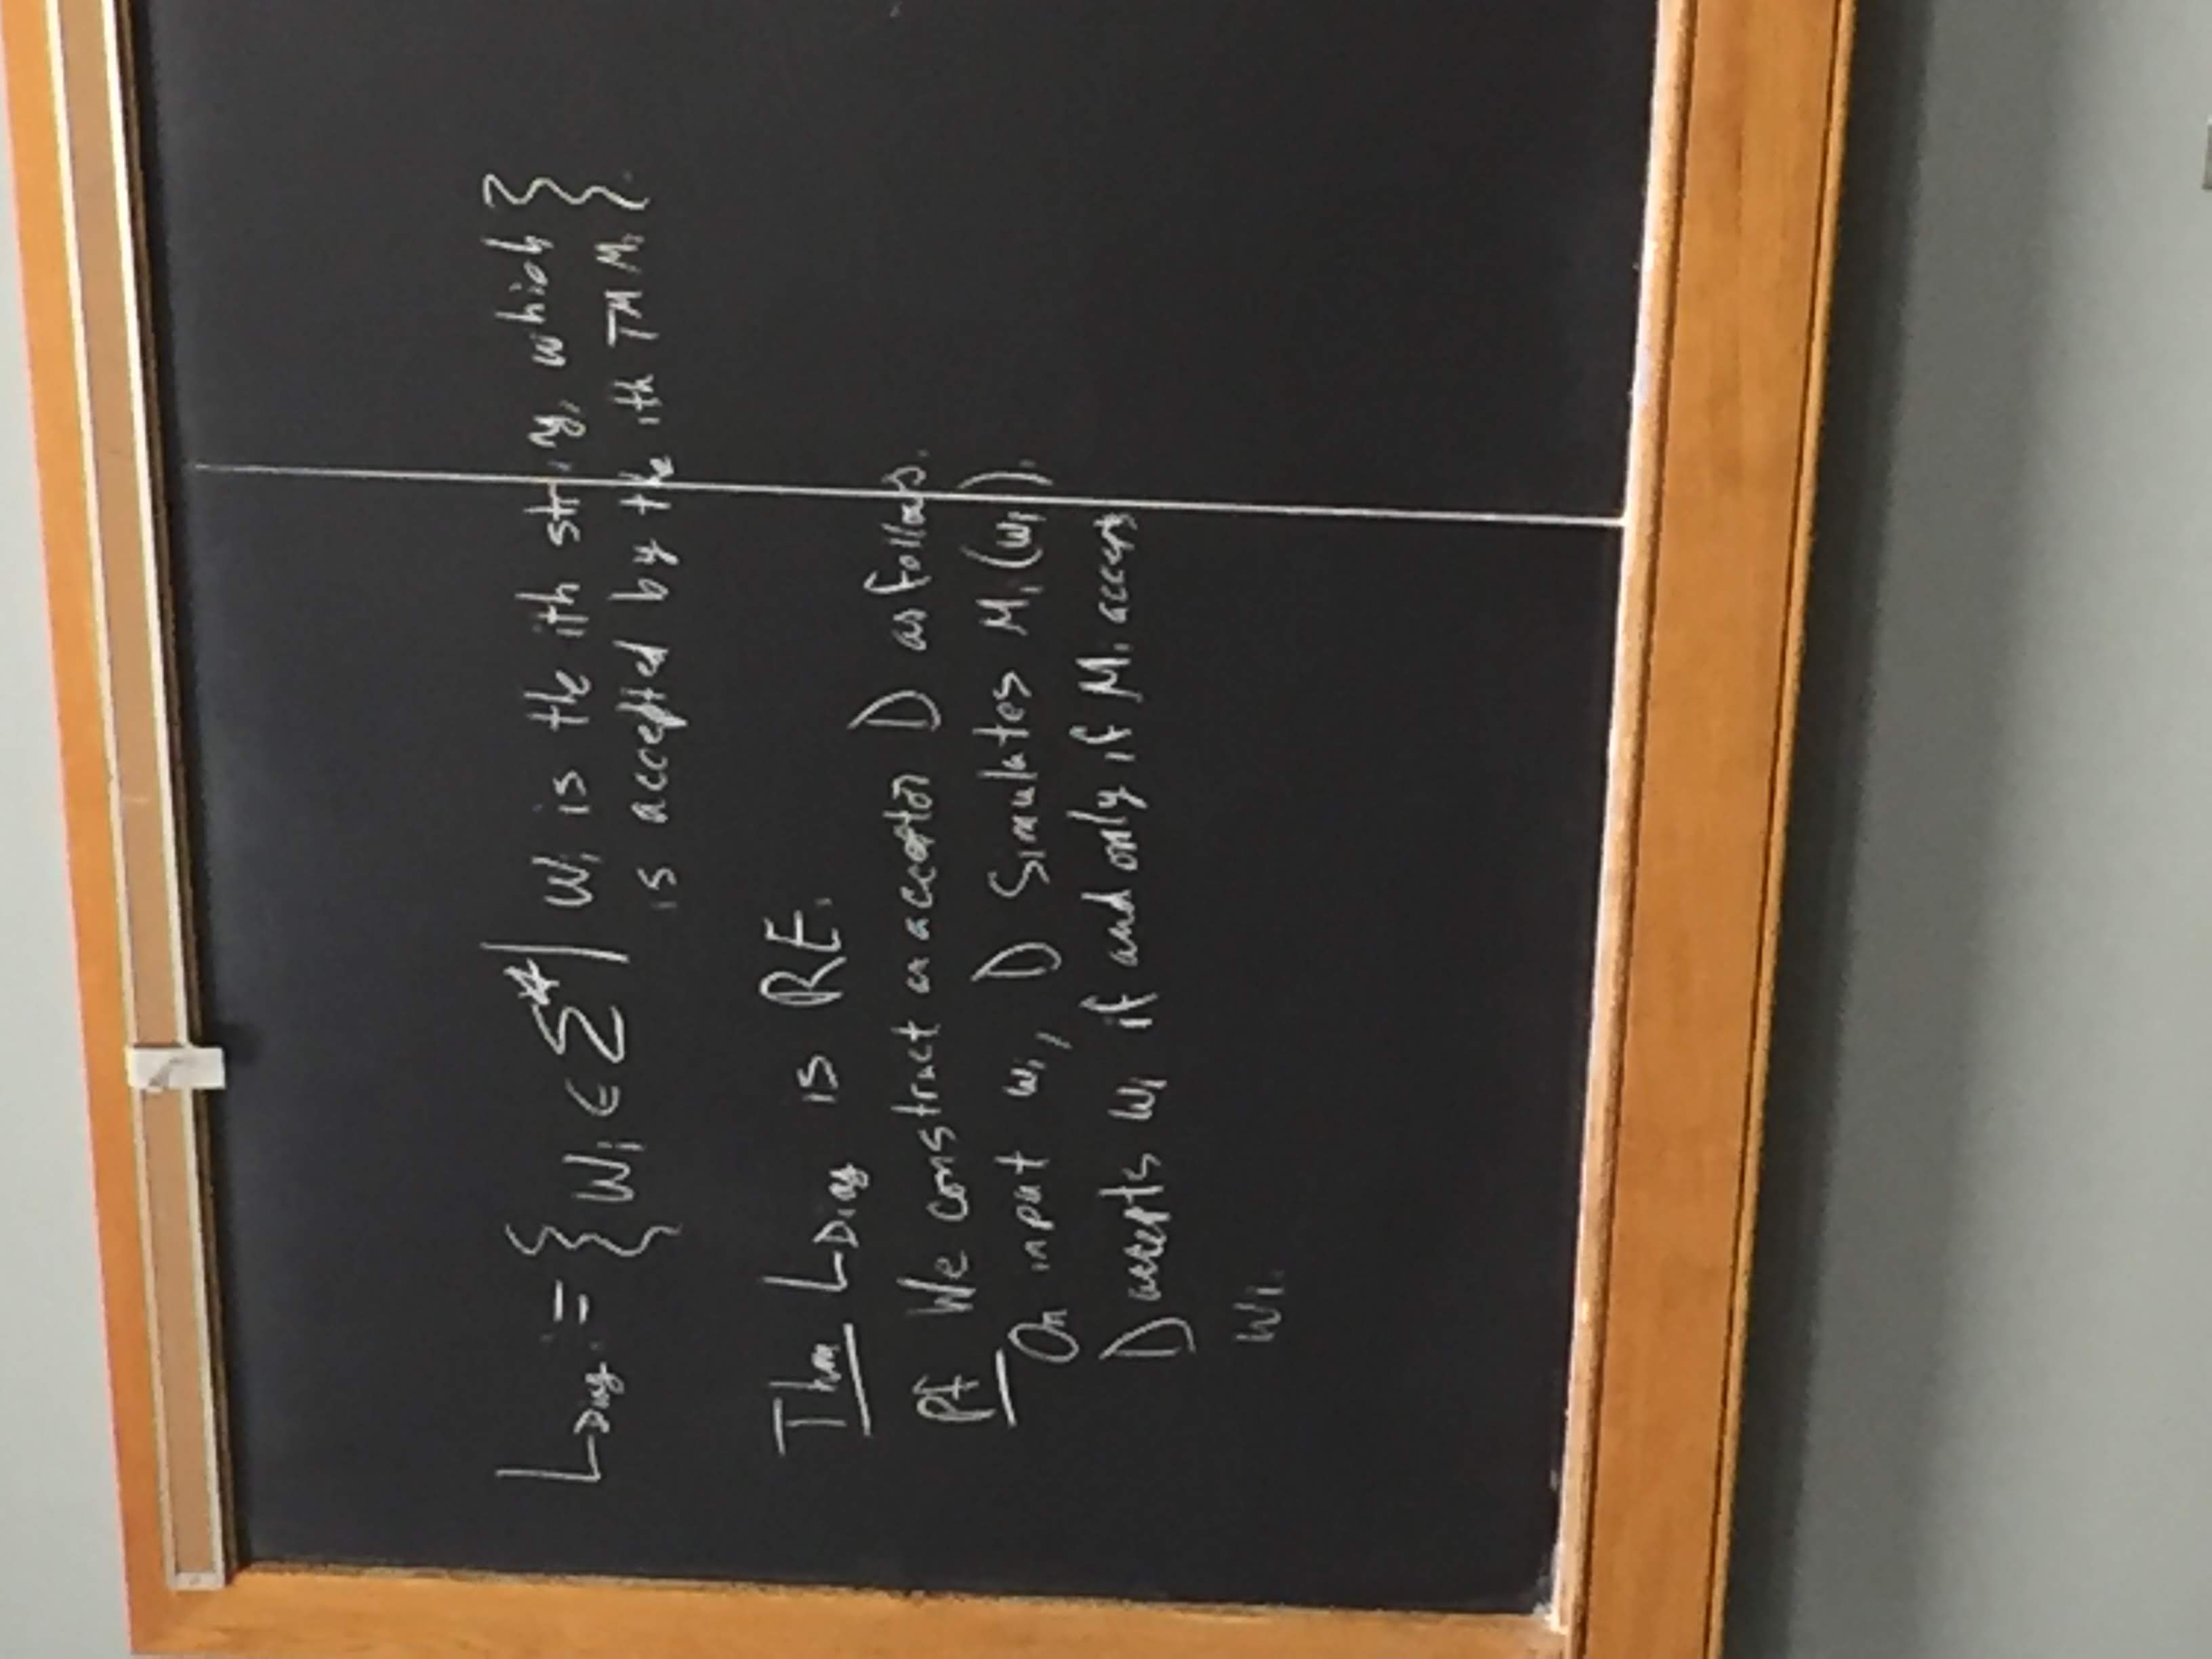 L_Diag := { w_i ∈ Σ* | w_i is the ith string, which
is accepted by the ith TM M_i }.
Thm L_Diag is RE.
Pf We construct an acceptor D as follows.
On input w_i, D simulates M_i(w_i).
D accepts w_i if and only if M_i accepts
w_i.